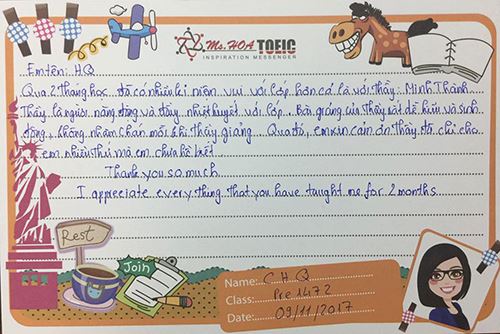 Ms. HOA TOEIC
INSPIRATION MESSENGER
Em tên: H.Q
Qua 2 tháng học, đã có nhiều kỉ niệm vui với lớp hơn cả là với thầy: Minh Thành
Thầy là người năng động và đầy nhiệt huyết với lớp. Bài giảng của Thầy rất dễ hiểu và sinh
động, không nhàm chán mỗi khi thầy giảng. Qua đó, em xin cảm ơn thầy đã chỉ cho
em nhiều thứ mà em chưa hề biết
Thank you so much
I appreciate every thing that you have taught me for 2 months
Rest
Join
Name: C.H.Q
Class: Pre 1472
Date: 09/11/2017